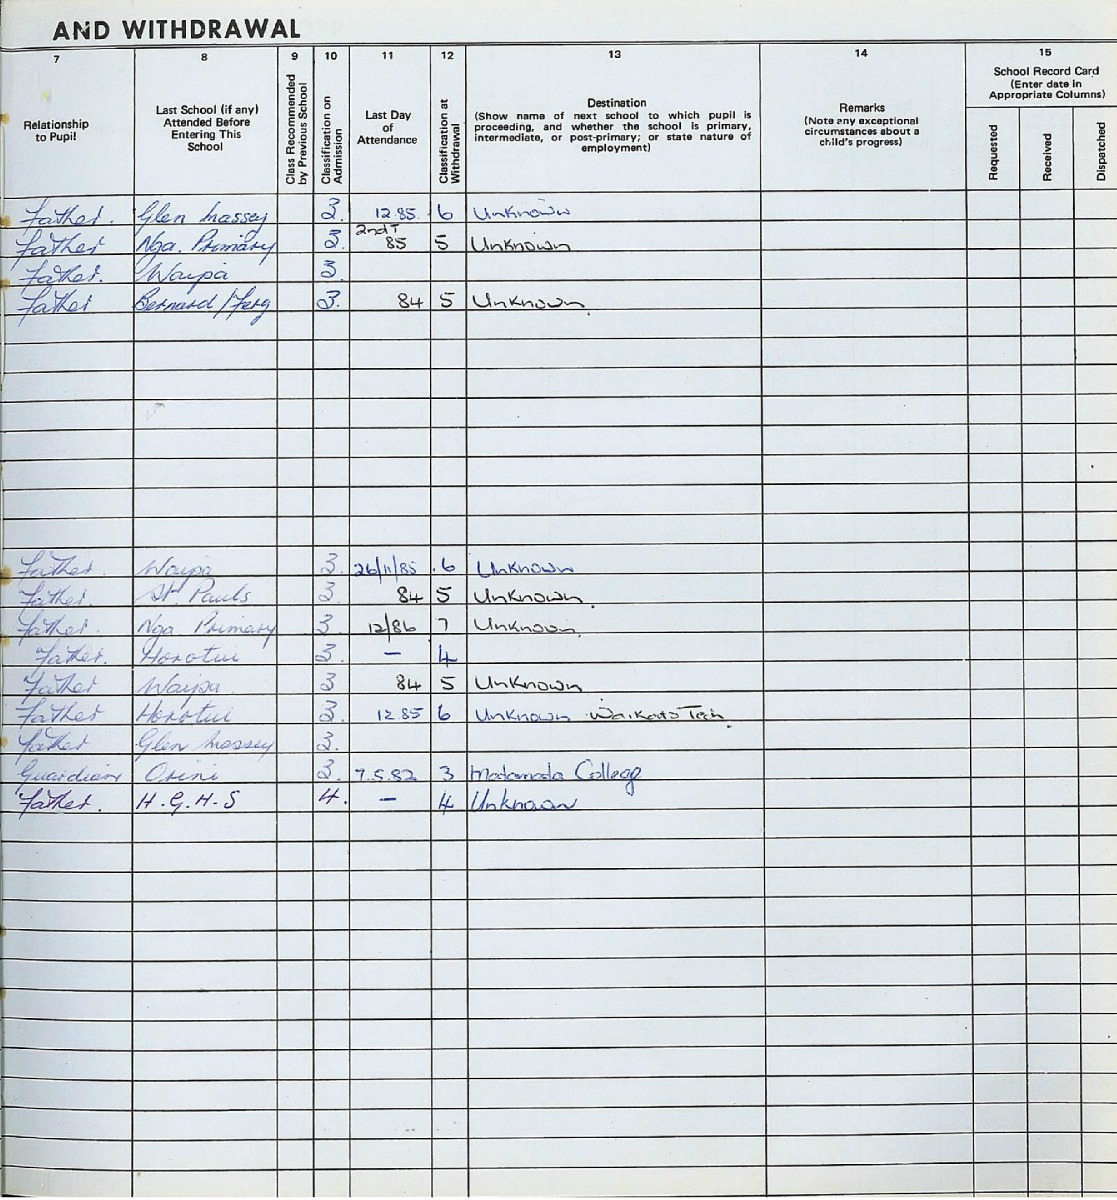 AND WITHDRAWAL
7 8 9 10 11 12 13 14 15
Relationship to Pupil
Last School (if any) Attended Before Entering This School
Class Recommended by Previous School
Classification on Admission
Last Day of Attendance
Classification at Withdrawal
Destination
(Show name of next school to which pupil is proceeding, and whether the school is primary, intermediate, or post-primary; or state nature of employment)
Remarks
(Note any exceptional circumstances about a child's progress)
School Record Card
(Enter date in Appropriate Columns)
Requested
Received
Dispatched
Father. Glen Massey 3. 12.85. 6 Unknown
Father Nga. Primary 3. 2nd T 85 5 Unknown
Father. Waipa 3.
Father Bernard/Ferg 3. 84 5 Unknown.
Father. Waipa 3. 26/11/85 .6 Unknown
Father. St. Pauls 3. 84 5 Unknown.
Father. Nga Primary 3. 12/86 7 Unknown.
Father. Horotiu 3. – 4
Father Waipa 3 84 5 Unknown
Father Horotiu 3. 12 85 6 Unknown Waikato Tech.
Father Glen Massey 3.
Guardian Orini 3. 7.5.82 3 Matamata College
Father. H.G.H.S 4. – 4 Unknown